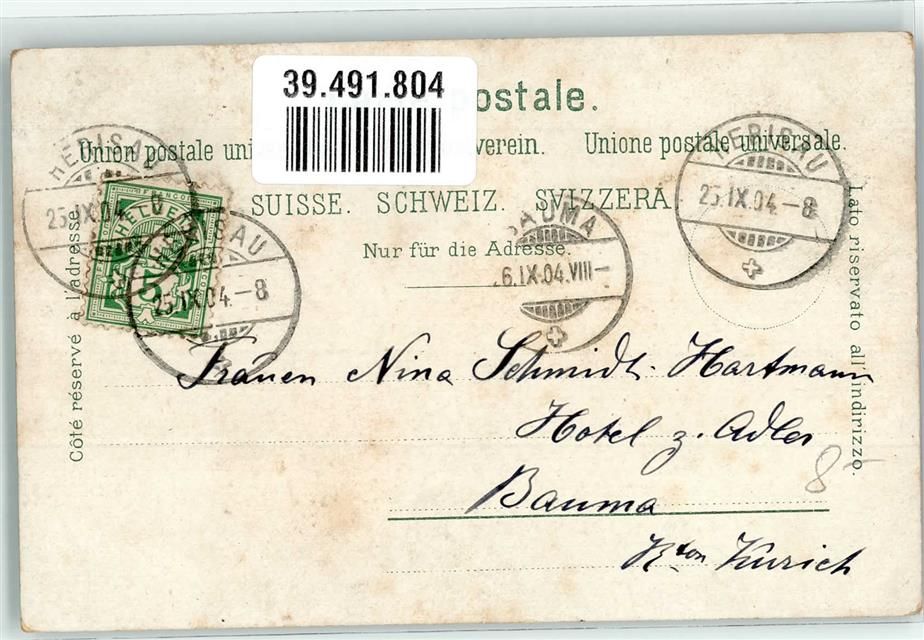 39.491.804
postale.
Union postale uni verein. Unione postale universale.
SUISSE. SCHWEIZ. SVIZZERA
Nur für die Adresse.
Côté réservé à l'adresse
Lato riservato all'indirizzo.
HERISAU
25.IX.04.
FRANCO
HELVETIA
5
HERISAU
25.IX.04.-8
BAUMA
6.IX.04.VIII-
HERISAU
25.IX.04.-8
Frauen Nina Schmidt-Hartmann
Hotel z. Adler
Bauma
Kton Zürich
8